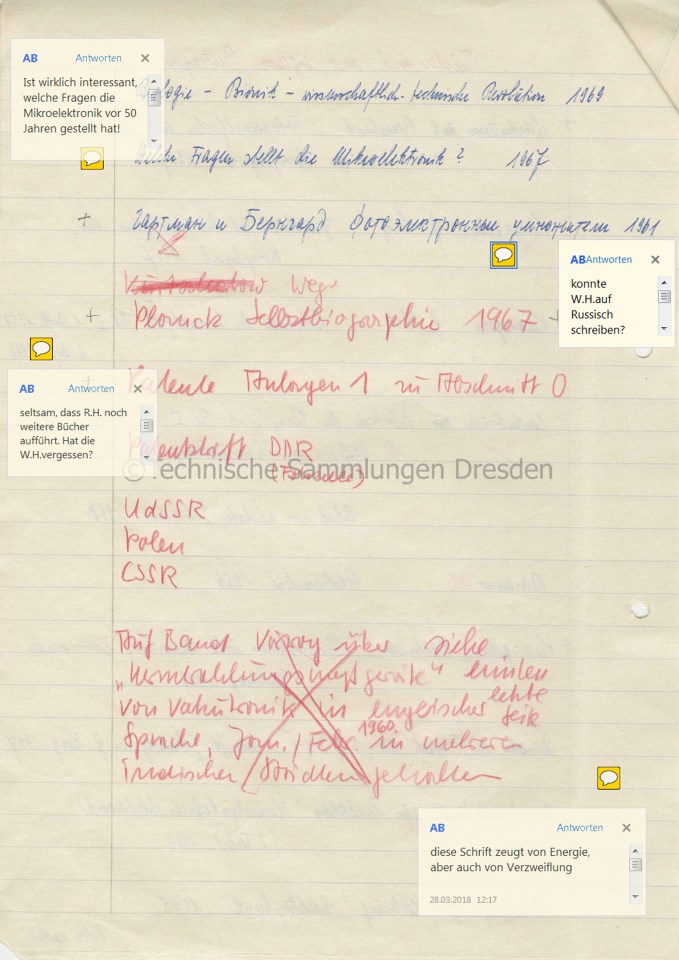 AB Antworten
Ist wirklich interessant,
welche Fragen die
Mikroelektronik vor 50
Jahren gestellt hat!
– Bionik – wissenschaftlich-technische Revolution 1969
Fragen stellt die Mikroelektronik? 1967
+ Гартман и Бернгард Фотоэлектронные умножители 1961
AB Antworten
konnte
W.H.auf
Russisch
schreiben?
Wege
+ Selbstbiographie 1967 +
AB Antworten
seltsam, dass R.H. noch
weitere Bücher
aufführt. Hat die
W.H.vergessen?
+ Patente Anlagen 1 zu Abschnitt 0
DDR
© Technische Sammlungen Dresden
UdSSR
Polen
CSSR
Auf Band über siehe
„Kernstrahlungsmeßgeräte“
von Vakutronik in englischer letzte Seite
Sprache, Jan. / Febr. 1960 in mehreren
indischen gehalten
AB Antworten
diese Schrift zeugt von Energie,
aber auch von Verzweiflung
28.03.2018 12:17